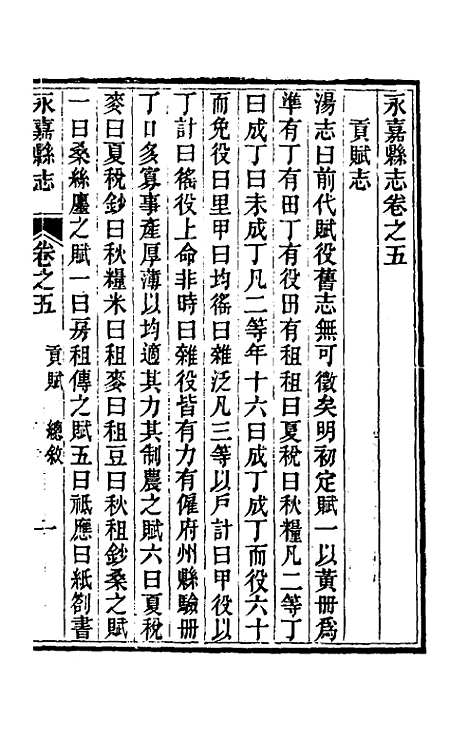 永嘉縣志卷之五
貢賦志
湯志曰前代賦役舊志無可徵矣明初定賦一以黃冊爲
準有丁有田丁有役田有租租曰夏稅曰秋糧凡二等丁
曰成丁曰未成丁凡二等年十六曰成丁成丁而役六十
而免役曰里甲曰均徭曰雜泛凡三等以戶計曰甲役以
丁計曰徭役上命非時曰雜役皆有力有僱府州縣驗冊
丁口多寡事產厚薄以均適其力其制農之賦六曰夏稅
麥曰夏稅鈔曰秋糧米曰租麥曰租豆曰秋租鈔桑之賦
一曰桑絲廛之賦一曰房租傳之賦五曰祗應曰紙劄書
永嘉縣志
卷之五
貢賦 總敘
一